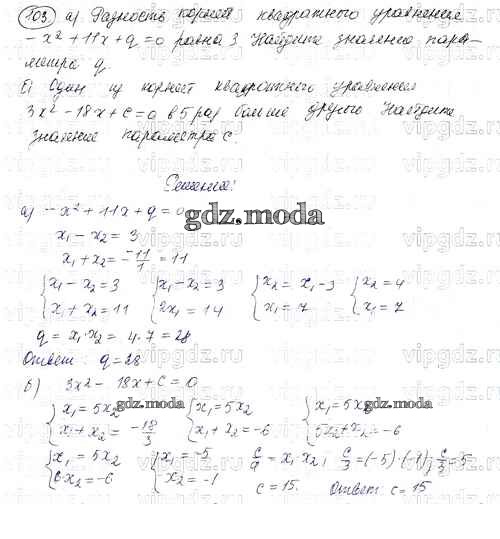 103 а) Разность корней квадратного уравнения
-x² + 11x + q = 0 равна 3. Найдите значение пара-
метра q.
б) Один из корней квадратного уравнения
3x² - 18x + c = 0 в 5 раз больше другого. Найдите
значение параметра c.
Решение:
а) -x² + 11x + q = 0
gdz.moda
x₁ - x₂ = 3
x₁ + x₂ = -11/1 = 11
{x₁ - x₂ = 3 {x₁ - x₂ = 3 {x₂ = x₁ - 3 {x₂ = 4
{x₁ + x₂ = 11 {2x₁ = 14 {x₁ = 7 {x₁ = 7
q = x₁·x₂ = 4·7 = 28
Ответ: q = 28
б) 3x² - 18x + c = 0
{x₁ = 5x₂ {x₁ = 5x₂ {x₁ = 5x₂
gdz.moda gdz.moda gdz.moda
{x₁ + x₂ = -18/3 {x₁ + x₂ = -6 {5x₂ + x₂ = -6
{x₁ = 5x₂ {x₁ = -5 c/a = x₁·x₂; c/3 = (-5)·(-1); c/3 = 5
{6·x₂ = -6 {x₂ = -1 c = 15. Ответ: c = 15
vipgdz.ru